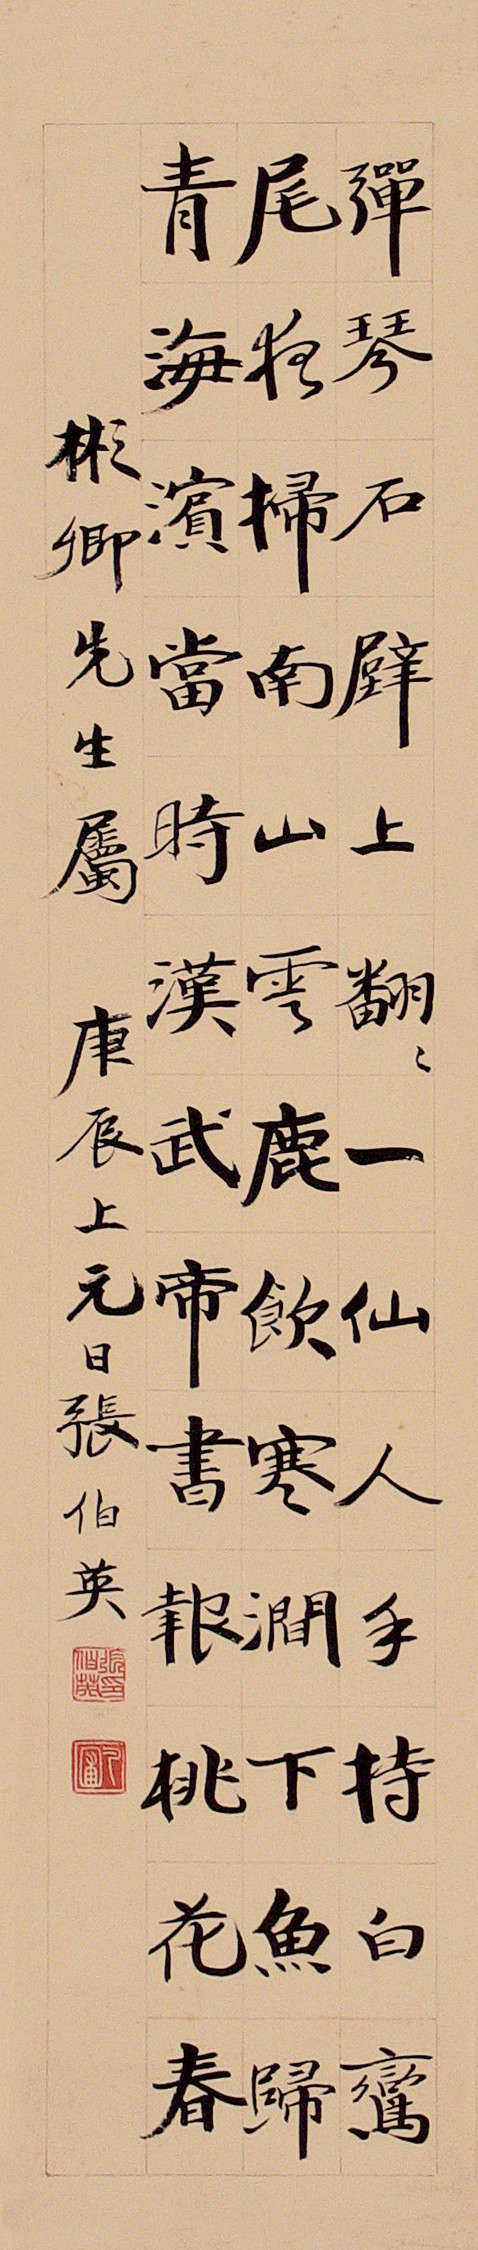 彈琴石壁上翻〻一仙人手持白鸞
尾夜掃南山雲鹿飲寒澗下魚歸
青海濱當時漢武帝書報桃花春
彬卿先生屬 庚辰上元日張伯英
張伯英印